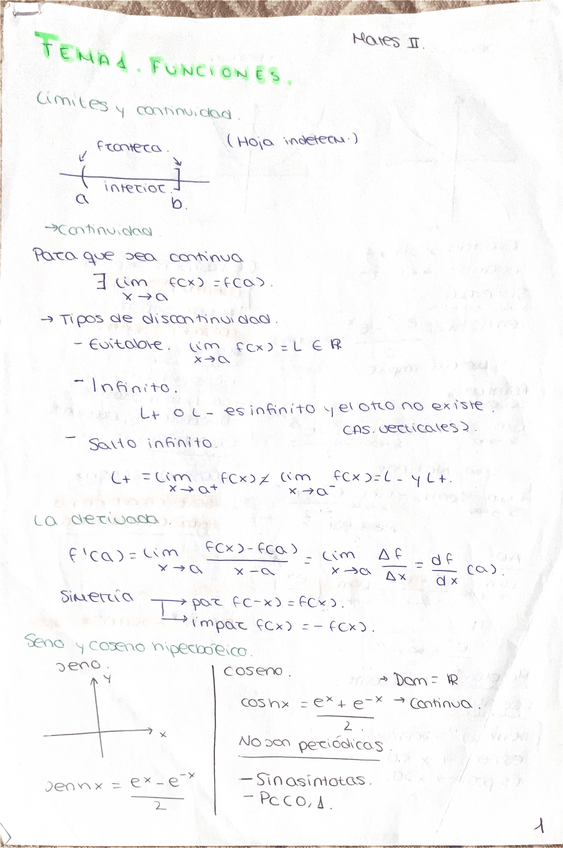 Mates II.
TEMA 1. FUNCIONES.
Límites y continuidad.
(Hoja indeterm.)
frontera.
interior
a b.
→ Continuidad
Para que sea continua
∃ lim x→a f(x) = f(a).
→ Tipos de discontinuidad.
- Evitable. lim x→a f(x) = L ∈ ℝ
- Infinito.
L+ o L- es infinito y el otro no existe.
(As. verticales).
- Salto infinito.
L+ = lim x→a+ f(x) ≠ lim x→a- f(x) = L- y L+.
La derivada
f'(a) = lim x→a f(x) - f(a) / x - a = lim x→a Δf / Δx = df / dx (a).
Simetría → par f(-x) = f(x).
→ impar f(x) = -f(x).
Seno y coseno hiperbólico.
seno.
y
x
senhx = e^x - e^-x / 2
coseno.
→ Dom = ℝ
coshx = e^x + e^-x / 2. → Continua.
No son periódicas.
- Sin asíntotas.
- Pc (0,1.
1